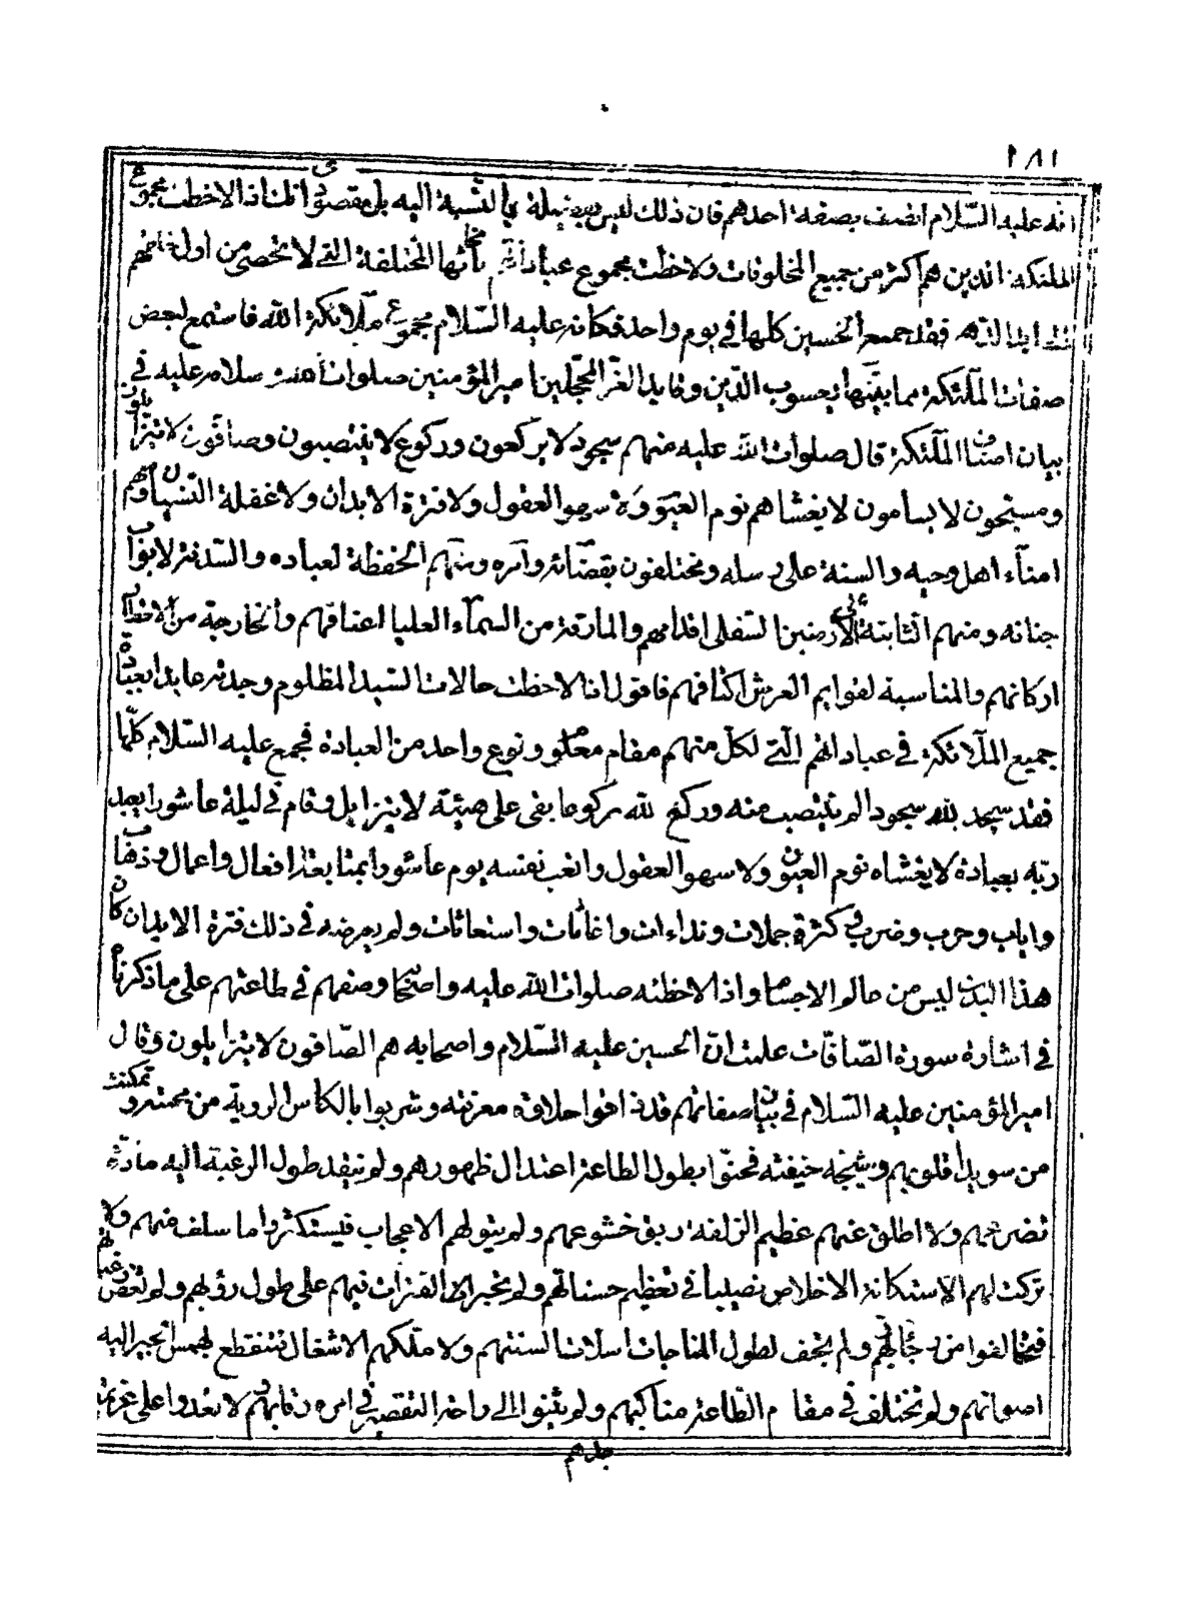 ١٨١
انه عليه السّلام اتصف بصفة احدهم فان ذلك ليس بفضيلة بالنّسبة اليه بل مقصودى انك اذا لاحظت مجموع
الملئكة الذين هم اكثر من جميع المخلوقات ولاحظت مجموع عباداتهم بانحائها المختلفة التى لا تحصى من اول خلقهم
الى ابد الدهر فقد جمع الحسين كلها فى يوم واحد فكانه عليه السّلام مجموع ملائكة الله فاستمع لبعض
صفات الملئكة مما بيّنها يعسوب الدّين وقايد الغرّ المحجّلين امير المؤمنين صلوات الله وسلامه عليه فى
بيان اصناف الملئكة قال صلوات الله عليه منهم سجود لا يركعون وركوع لا ينتصبون وصافّون لا يتزايلون
ومسبّحون لا يسامون لا يغشاهم نوم العيون ولا سهو العقول ولا فترة الابدان ولا غفلة النسيان ومنهم
امناء اهل وحيه والسنة على رسله ومختلفون بقضائه وامره ومنهم الحفظة لعباده والسّدنة لابواب
جنانه ومنهم الثابتة فى الارضين السّفلى اقدامهم والمارقة من السّماء العليا اعناقهم والخارجة من الاقطار
اركانهم والمناسبة لقوايم العرش اكتافهم فاقول اذا لاحظت حالات السّيد المظلوم وجدته عابدا بعبادة
جميع الملائكة فى عباداتهم الّتى لكلّ منهم مقام معلوم ونوع واحد من العبادة فجمع عليه السّلام كلّها
فقد سجد لله سجودا لم ينتصب منه وركع لله ركوعا بقى على هيئته لا يتزايل وقام فى ليلة عاشورا يعبد
ربّه بعبادة لا يغشاه نوم العيون ولا سهو العقول واتعب نفسه يوم عاشورا بمتابعة افعال واعمال وذهاب
واياب وحرب وضرب فى كثرة حملات ونداءات واغاثات واستغاثات ولم يعرضه فى ذلك فترة الابدان كان
هذا البدن ليس من عالم الاجسام واذا لاحظته صلوات الله عليه واصحابه وصفهم فى طاعتهم على ما ذكرناه
فى اشارة سورة الصّافّات علمت انّ الحسين عليه السّلام واصحابه هم الصّافون لا يتزايلون وقال
امير المؤمنين عليه السّلام فى بيان صفاتهم قد ذاقوا حلاوة معرفته وشربوا بالكاس الروية من محبته وتمكنت
من سويدا قلوبهم وشيجة خيفته فحنوا بطول الطاعة اعتدال ظهورهم ولم ينفد طول الرغبة اليه مادّة
تضرعهم ولا اطلق عنهم عظيم الزلفة ربق خشوعهم ولم يتولهم الاعجاب فيستكثروا ما سلف منهم ولا
تركت لهم الاستكانة الاخلاص نصيبا فى تعظيم حسناتهم ولم تجر الفترات فيهم على طول دؤبهم ولم تغض رغباتهم
فيخالفوا من رجائهم ولم يجف لطول المناجات اسلات السنتهم ولا ملكهم الاشغال فتنقطع بهمس الجير اليه
اصواتهم ولم تختلف فى مقام الطّاعة مناكبهم ولم يثنوا الى راحة التقصير فى امره رقابهم لا تعدوا على عزيمة
جدهم